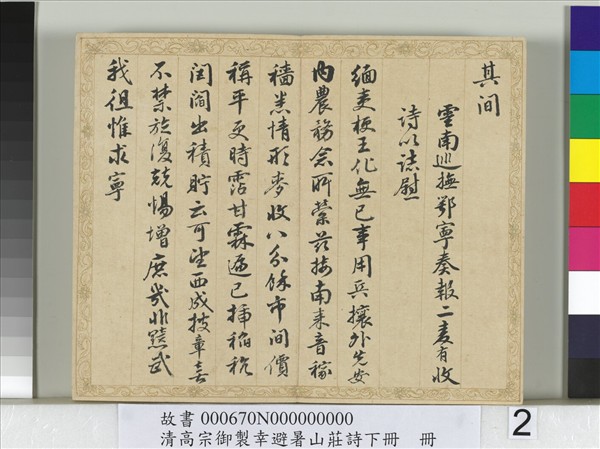 其間
雲南巡撫鄂寧奏報二麥有收
詩以誌慰
緬夷梗王化無已事用兵攘外先安
內農務念所縈茲接南來音稼
穡悉情形麥收八分餘市間價
稱平更時霑甘霖遍已插稻秔
閭閻出積貯云可望西成披章喜
不禁旋復兢惕增庶幾非黷武
我但惟求寧
故書 000670N000000000
清高宗御製幸避暑山莊詩下冊 冊
2